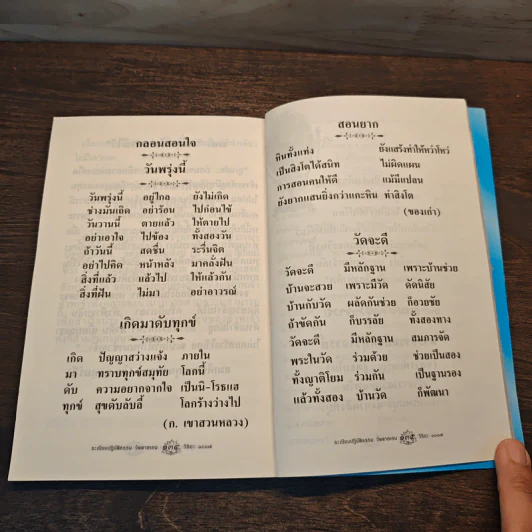 กลอนสอนใจ
วันพรุ่งนี้
วันพรุ่งนี้ อยู่ไกล ยังไม่เกิด
ช่างมันเถิด อย่าร้อน ไปก่อนไข้
วันวานนี้ ตายแล้ว ให้ตายไป
อย่าเอาใจ ไปข้อง ทั้งสองวัน
ถ้าวันนี้ สดชื่น ระรื่นจิต
อย่าไปคิด หน้าหลัง มาคลั่งฝัน
สิ่งที่แล้ว แล้วไป ให้แล้วกัน
สิ่งที่ฝัน ไม่มา อย่าอาวรณ์
เกิดมาดับทุกข์
เกิด ปัญญาสว่างแจ้ง ภายใน
มา ทราบทุกข์สมุทัย โลกนี้
ดับ ความอยากจากใจ เป็นนิ-โรธแฮ
ทุกข์ สุขดับลับลี้ โลกร้างว่างไป
(ก. เขาสวนหลวง)
ระเบียบปฏิบัติธรรม วัดตาลเอน ๑๓๔
สอนยาก
หินทั้งแท่ง ยังแสร้งทำให้หวำโหว่
เป็นสิงโตได้สนิท ไม่ผิดแผน
การสอนคนให้ดี แม้มีแปลน
ยังยากแสนยิ่งกว่าแกะหิน ทำสิงโต
(ของเก่า)
วัดจะดี
วัดจะดี มีหลักฐาน เพราะบ้านช่วย
บ้านจะสวย เพราะมีวัด ดัดนิสัย
บ้านกับวัด ผลัดกันช่วย ก็อวยชัย
ถ้าขัดกัน ก็บรรลัย ทั้งสองทาง
วัดจะดี มีหลักฐาน สมภารจัด
พระในวัด ร่วมด้วย ช่วยเป็นสอง
ทั้งญาติโยม ร่วมกัน เป็นฐานรอง
แล้วทั้งสอง บ้านวัด ก็พัฒนา
ระเบียบปฏิบัติธรรม วัดตาลเอน ๑๓๕